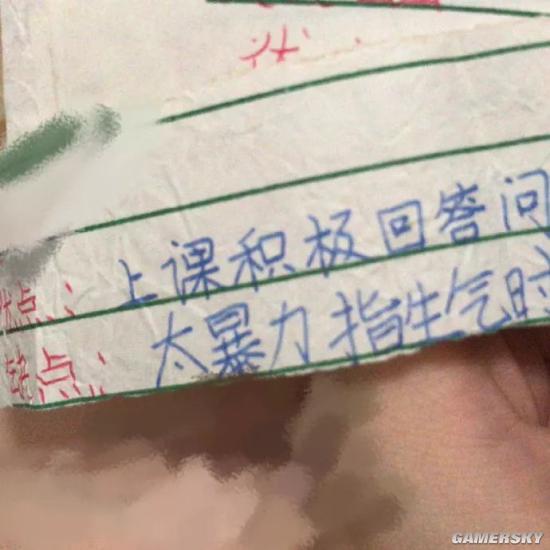 优点:上课积极回答问
缺点:太暴力指生气时
GAMERSKY